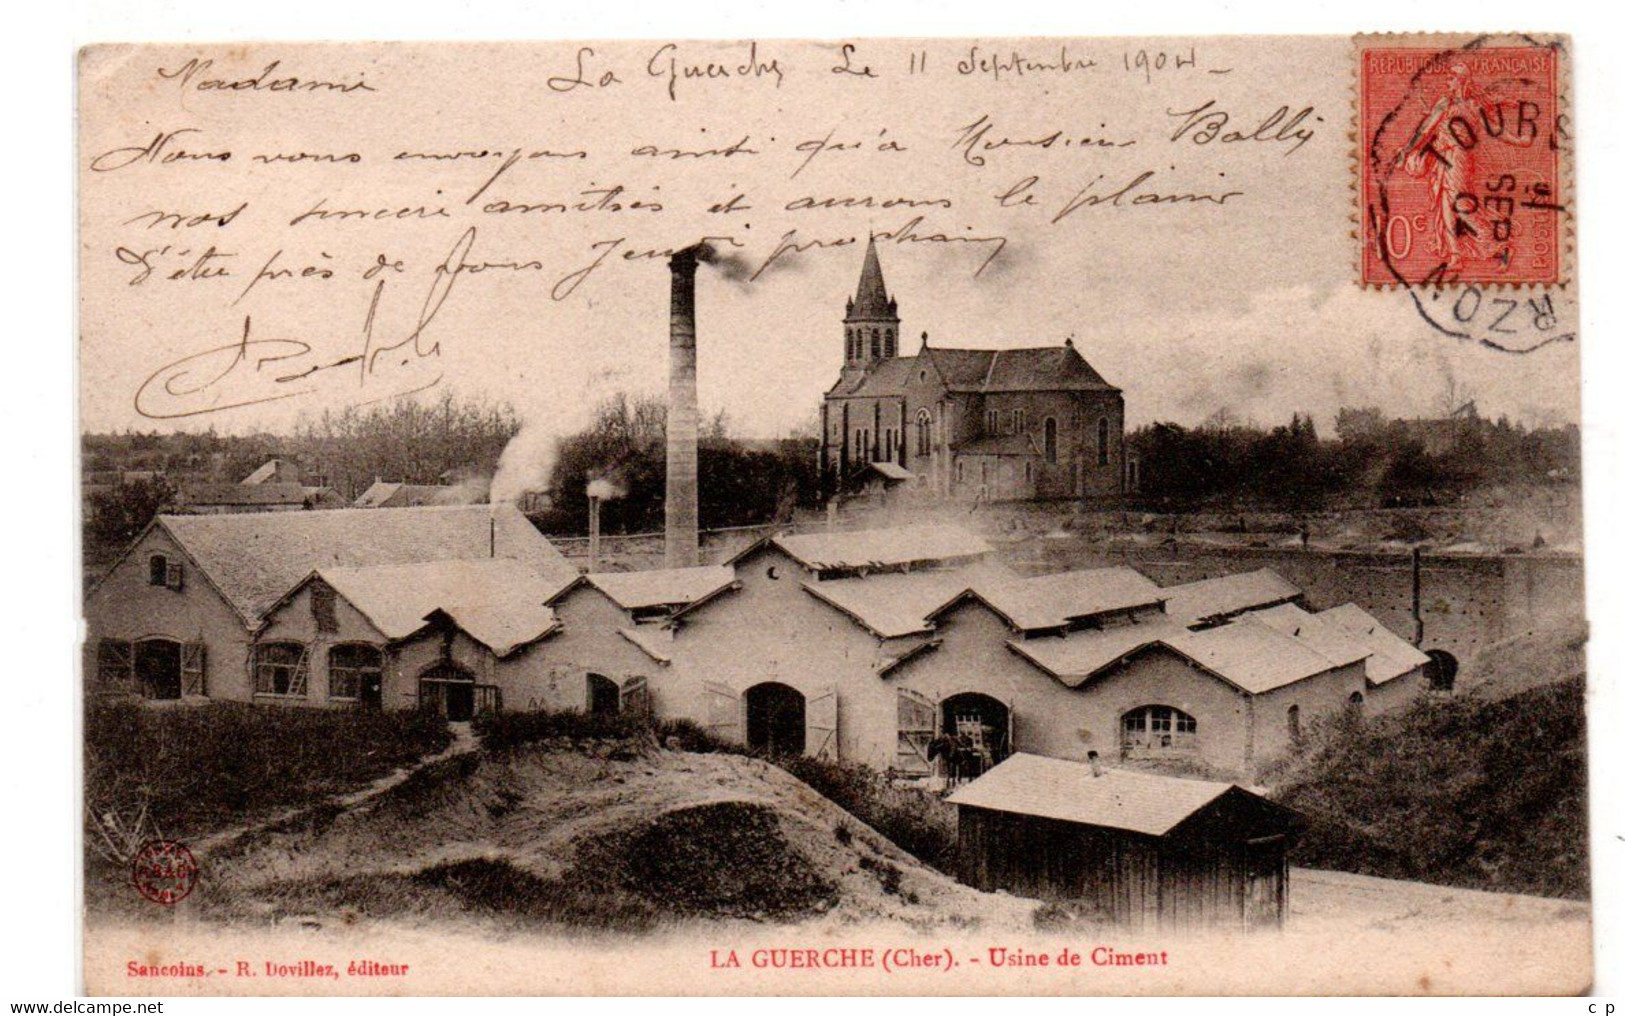 Madame La Guerche Le 11 Septembre 1904 -
Nous vous envoyons ainsi qu'à Monsieur Bally
nos sincère amitiés et aurons le plaisir
d'être près de vous Jeudi prochain
REPUBLIQUE FRANÇAISE
10c
POSTES
TOURS
11
SEPT
04
RZON
LA GUERCHE (Cher). - Usine de Ciment
Sancoins. - R. Dovillez, éditeur
delcampe.net
c p